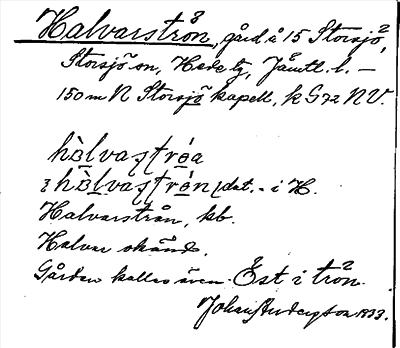 Halvarstrån, gård å 15 Storsjö²,
Storsjö sn, Hede tg, Jämtl. l. –
150 m N Storsjö kapell, k G 72 NV.
hàlvastréa
hàlvastrén dat. – i H.
Halvarstrån, kb.
Halvar okänd.
Gården kallas även Öst i trön.
Johan Anderzson 1933.